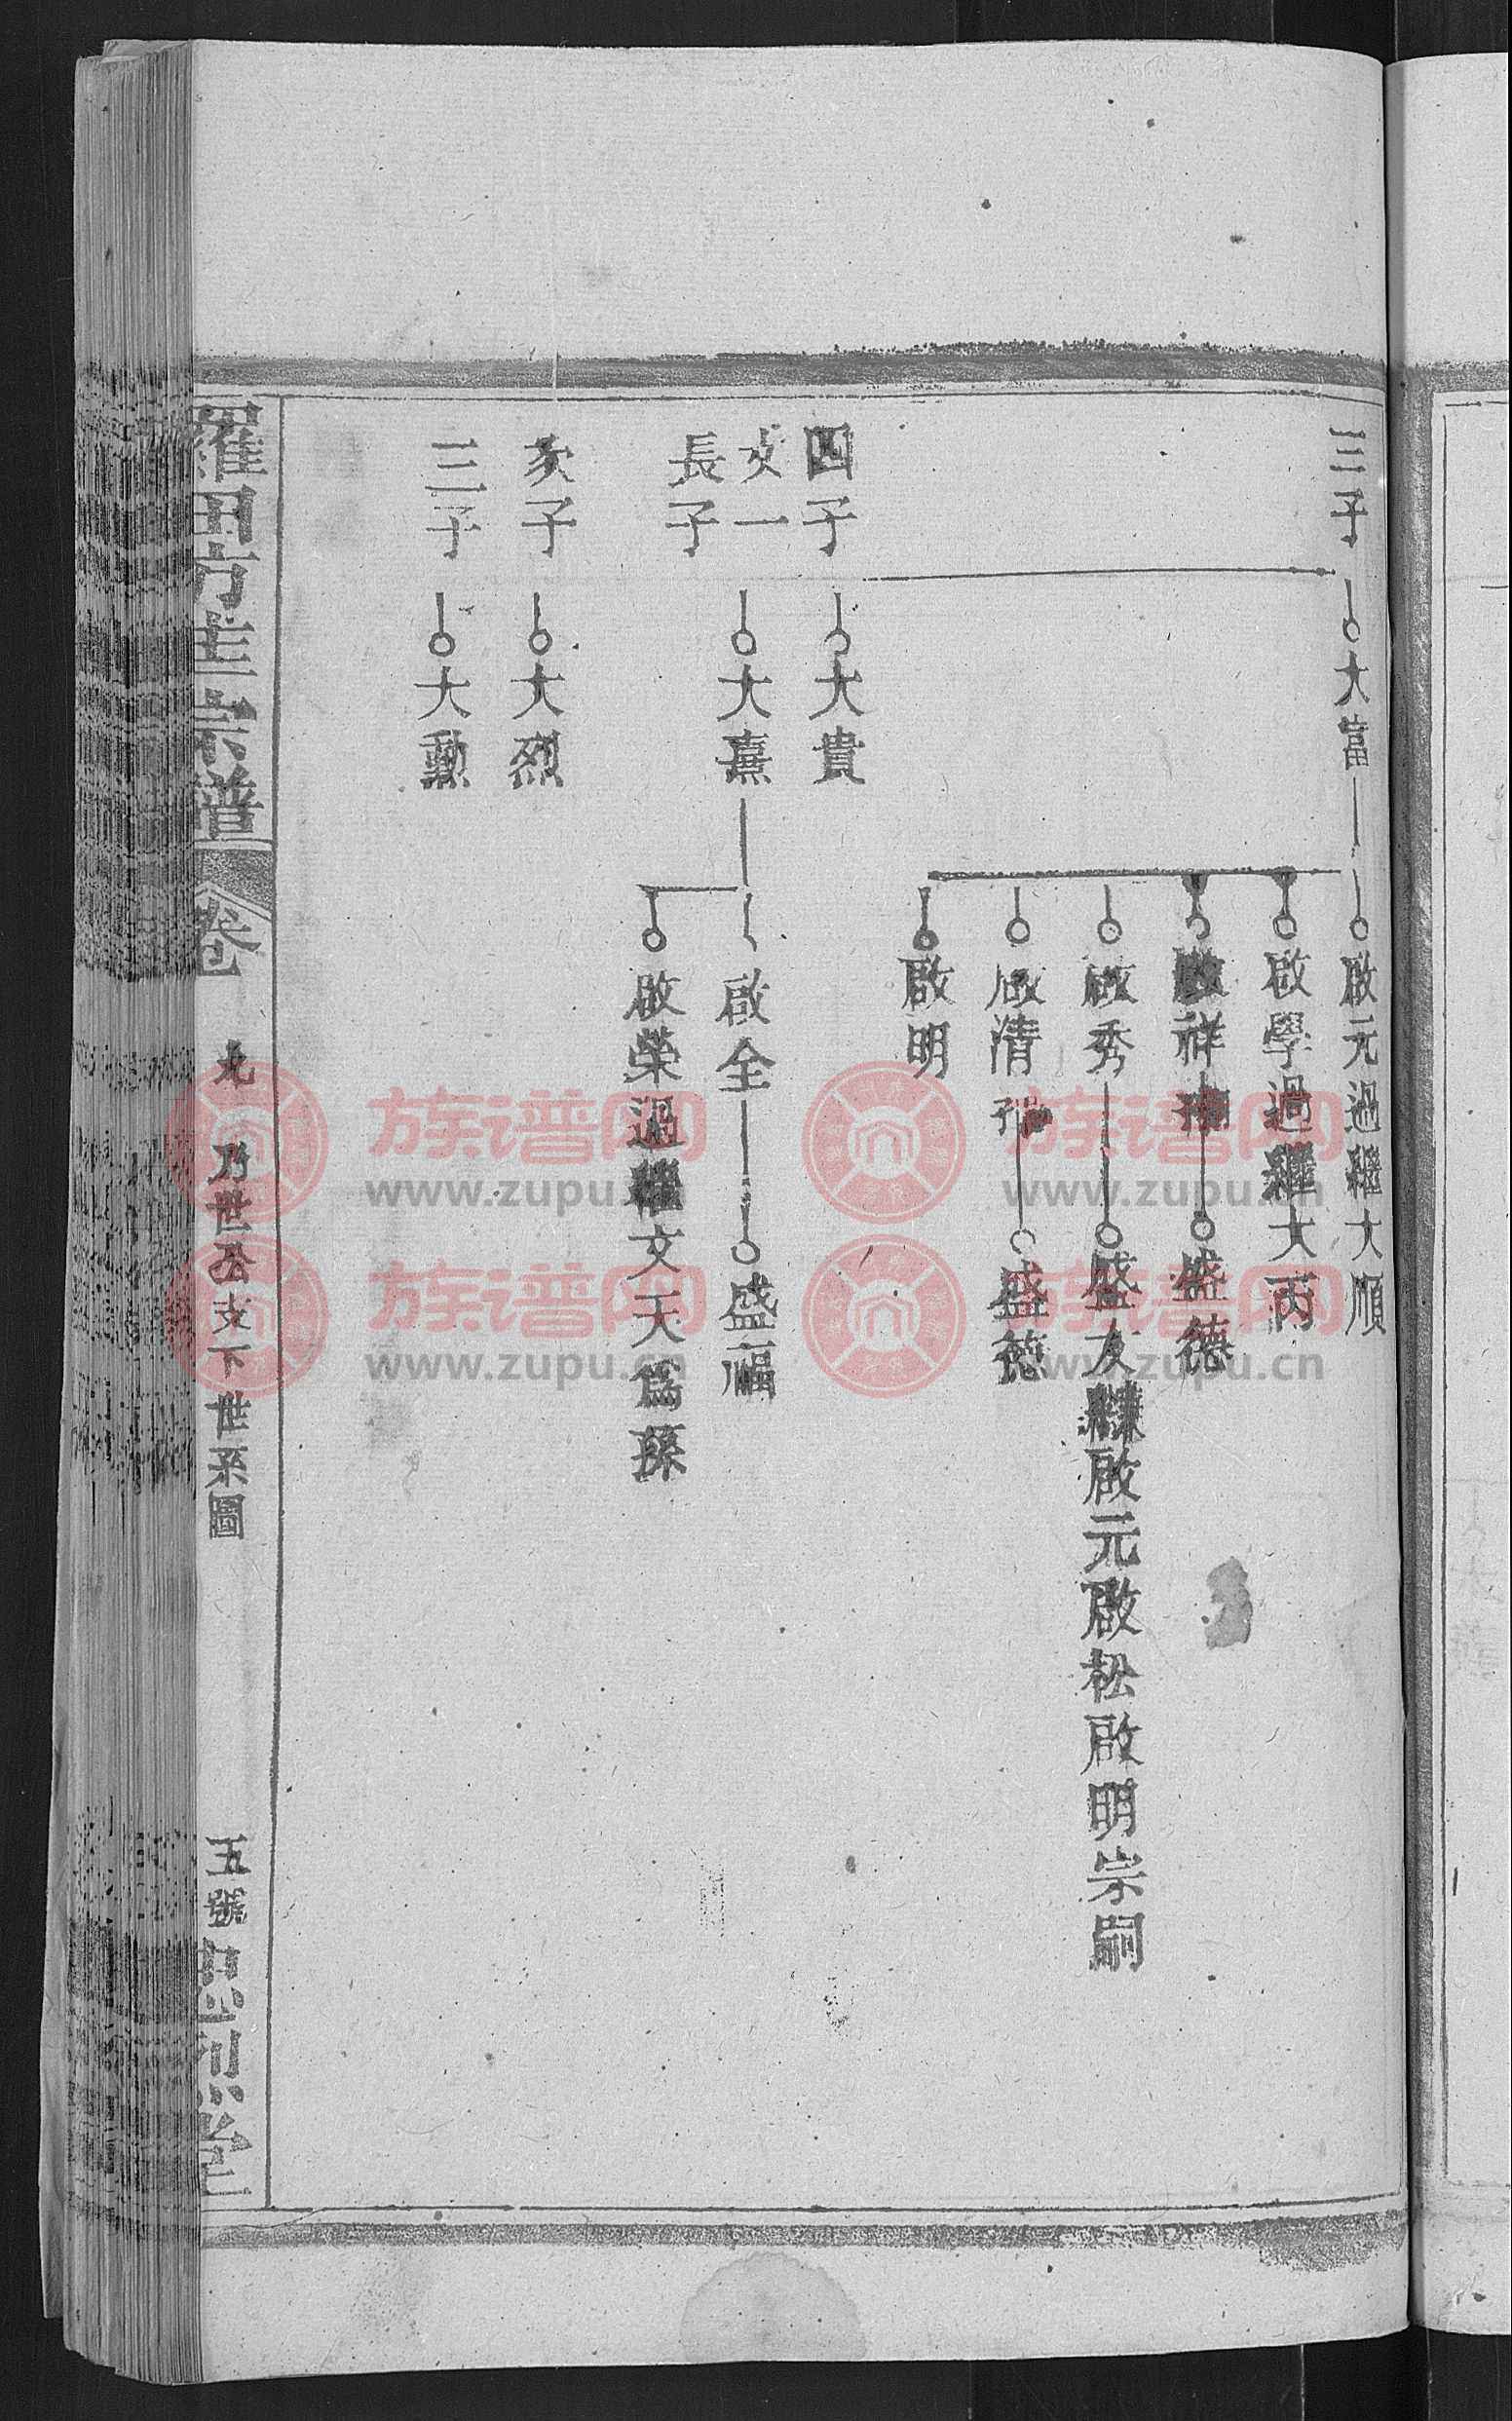 三子
大富
啟元過繼大順
啟學過繼大丙
祥
盛德
啟秀
盛友
啟元啟松啟明宗嗣
啟清
盛德
啟明
四子
大貴
文一
長子
大熹
啟全
盛福
啟榮過繼文天爲孫
次子
大烈
三子
大勳
羅田方莊宗譜
卷
九
乃世公支下世系圖
五號
忠烈堂
族谱网
www.zupu.cn
族谱网
www.zupu.cn
族谱网
www.zupu.cn
族谱网
www.zupu.cn